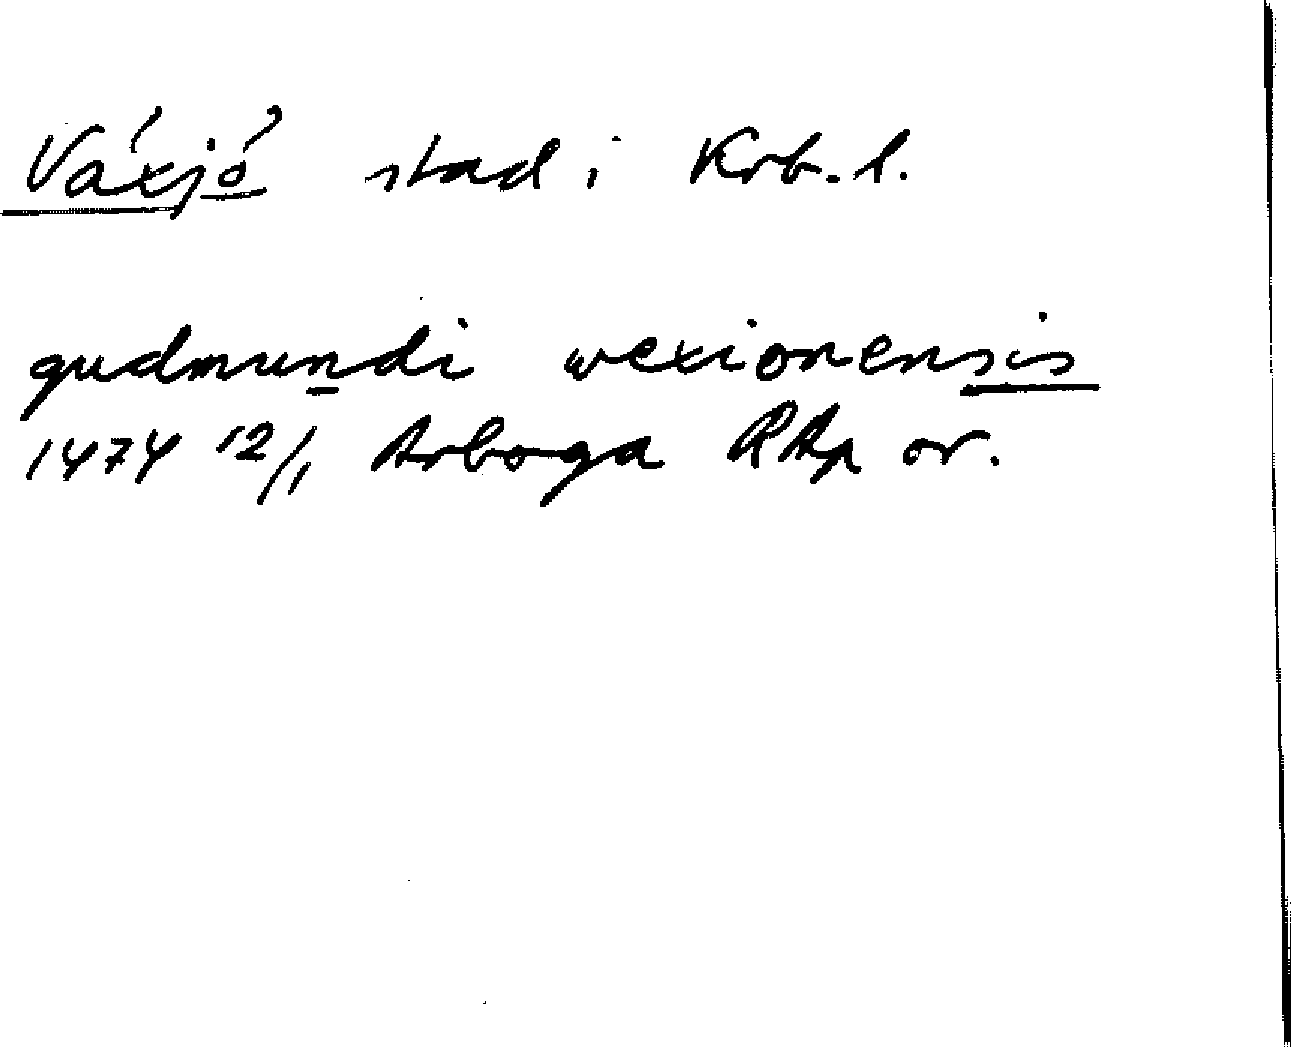 Växjö stad i Krb. l.
gudmundi wexionensis
1474 12/1 Arboga RAp or.